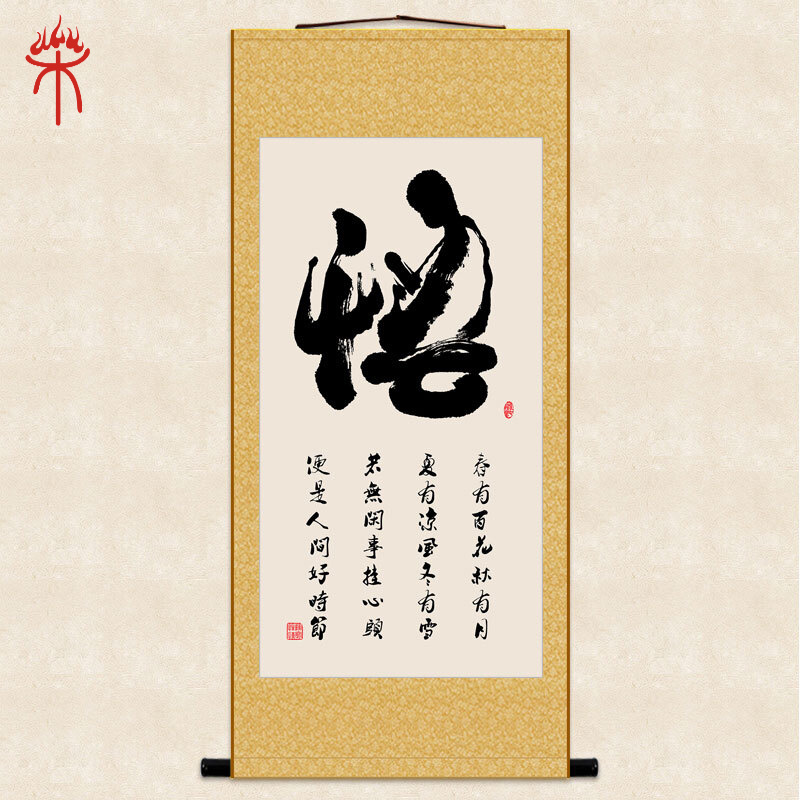 悟
春有百花秋有月
夏有涼風冬有雪
若無閑事挂心頭
便是人間好時節